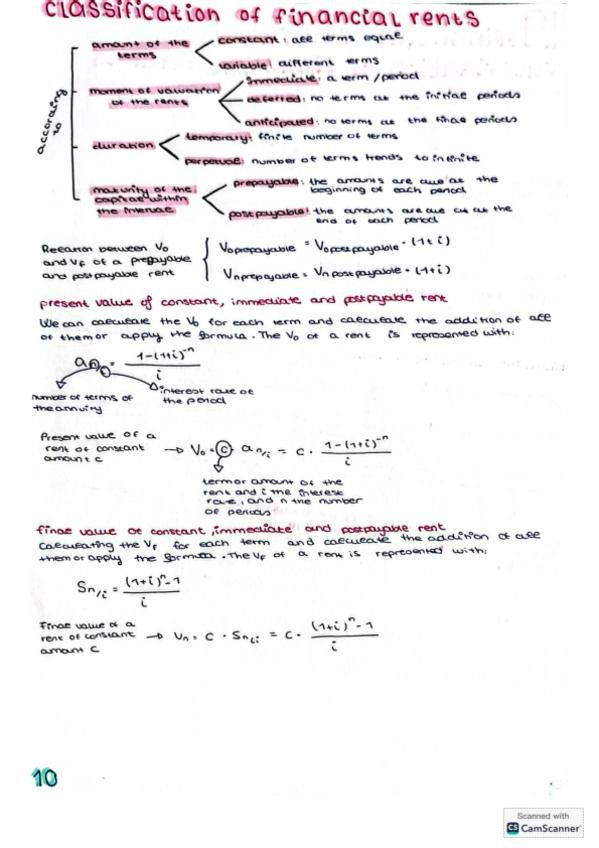 classification of financial rents
according to
amount of the terms
constant: all terms equal
variable: different terms
moment of valuation of the rents
immediate: a term / period
deferred: no terms at the initial periods
anticipated: no terms at the final periods
duration
temporary: finite number of terms
perpetual: number of terms trends to infinite
maturity of the capital within the interval
prepayable: the amounts are due at the
beginning of each period
postpayable: the amounts are due at the
end of each period
Relation between V₀
and VF of a prepayable
and postpayable rent
V₀ prepayable = V₀ postpayable · (1+i)
Vn prepayable = Vn postpayable · (1+i)
present value of constant, immediate and postpayable rent
We can calculate the V₀ for each term and calculate the addition of all
of them or apply the formula. The V₀ of a rent is represented with:
an/i = 1-(1+i)⁻ⁿ / i
number of terms of
the annuity
interest rate of
the period
Present value of a
rent of constant
amount c
→ V₀ = C · an/i = c · 1-(1+i)⁻ⁿ / i
term or amount of the
rent and i the interest
rate, and n the number
of periods
final value of constant, immediate and postpayable rent
Calculating the VF for each term and calculate the addition of all
them or apply the formula. The VF of a rent is represented with:
Sn/i = (1+i)ⁿ-1 / i
Final value of a
rent of constant
amount C
→ Vn = C · Sn/i = C · (1+i)ⁿ-1 / i
10
Scanned with
CS CamScanner